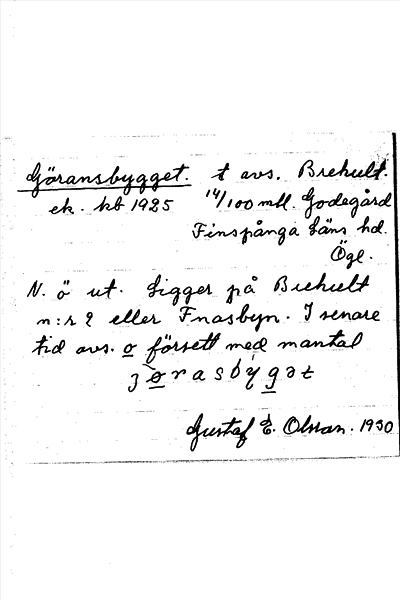 Göransbygget. t avs. Brehult.
ek. kb 1925 14/100 mtl. Godegård
Finspånga läns hd.
Ögl.
N. ö ut. Ligger på Brehult
n:r 2 eller Fnasbyn. I senare
tid avs. o försett med mantal
jørasbýgət
Gustaf E. Olsson. 1930